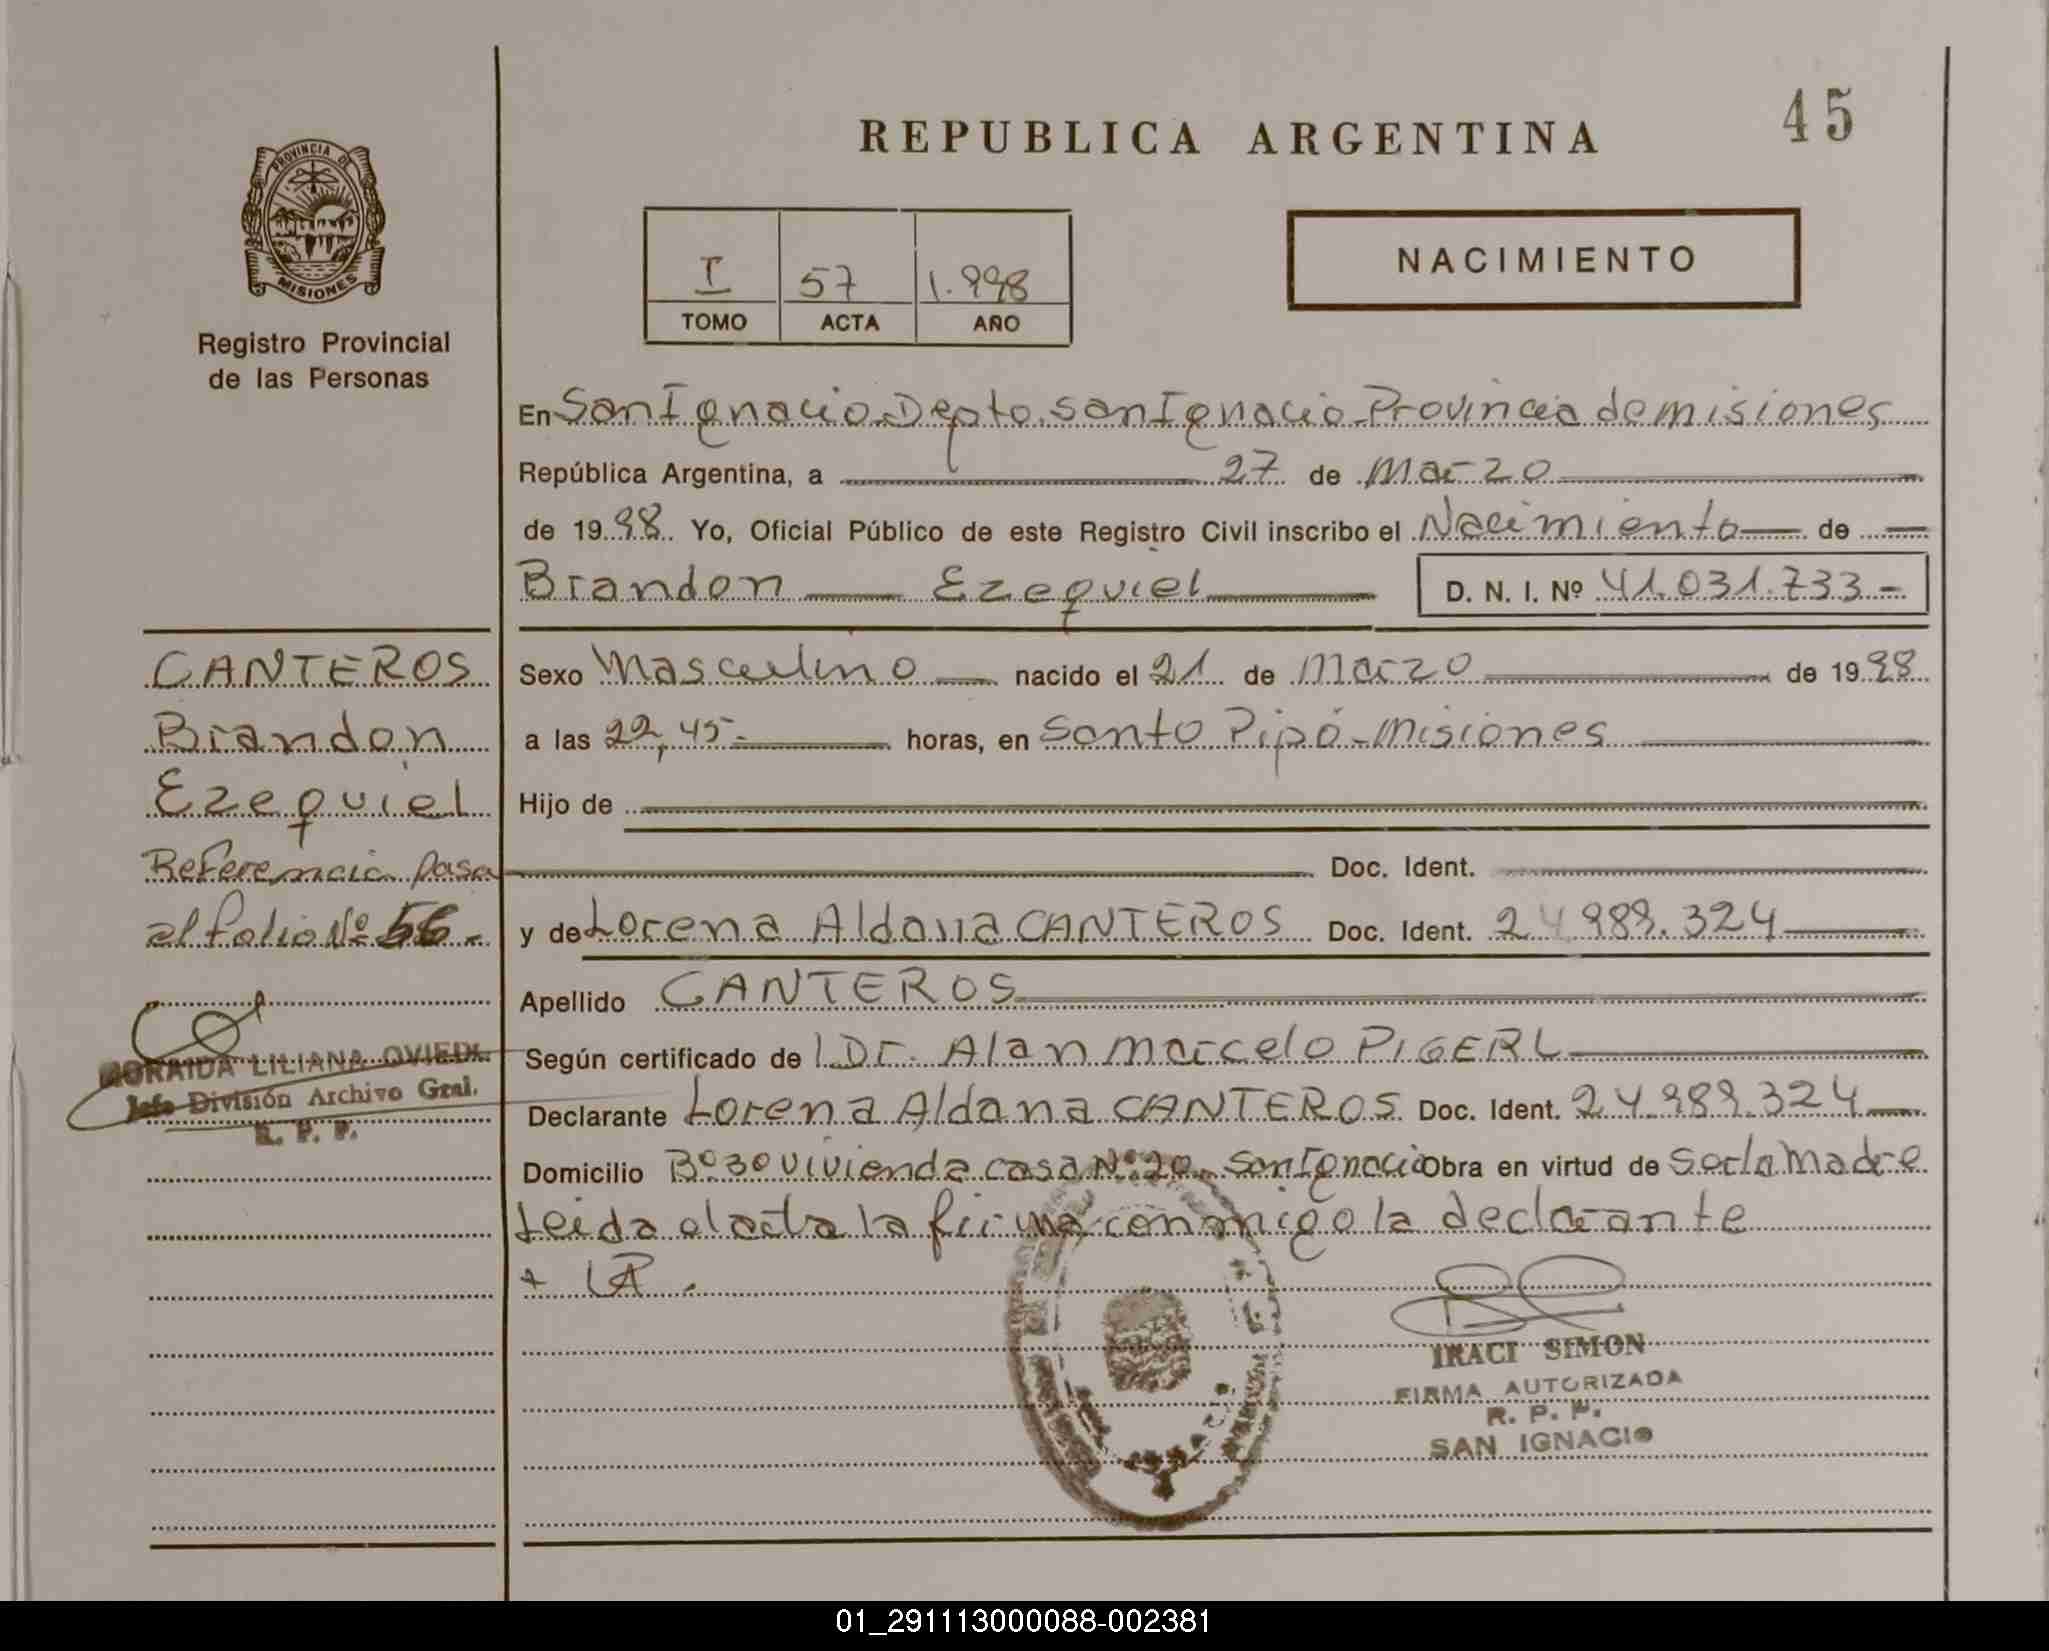 45
REPUBLICA ARGENTINA
PROVINCIA DE
MISIONES
Registro Provincial
de las Personas
I 57 1.998
TOMO ACTA AÑO
NACIMIENTO
En San Ignacio Depto. San Ignacio Provincia de misiones
República Argentina, a 27 de Marzo
de 1998 Yo, Oficial Público de este Registro Civil inscribo el Nacimiento de
Brandon Ezequiel D. N. I. Nº 41.031.733-
CANTEROS
Brandon
Ezequiel
Referencia pasa
al folio Nº 56-
MORAIDA LILIANA OVIEDO
Jefe División Archivo Gral.
R. P. P.
Sexo Masculino nacido el 21 de Marzo de 1998
a las 22,45- horas, en Santo Pipó-Misiones
Hijo de
Doc. Ident.
y de Lorena Aldana CANTEROS Doc. Ident. 24.989.324
Apellido CANTEROS
Según certificado de l Dr. Alan Marcelo PIGERL
Declarante Lorena Aldana CANTEROS Doc. Ident. 24.989.324
Domicilio Bº 30 vivienda casa Nº 20 San Ignacio Obra en virtud de ser la Madre
Leida el acta la firma conmigo la declarante
IRACI SIMON
FIRMA AUTORIZADA
R. P. P.
SAN IGNACIO
01_291113000088-002381